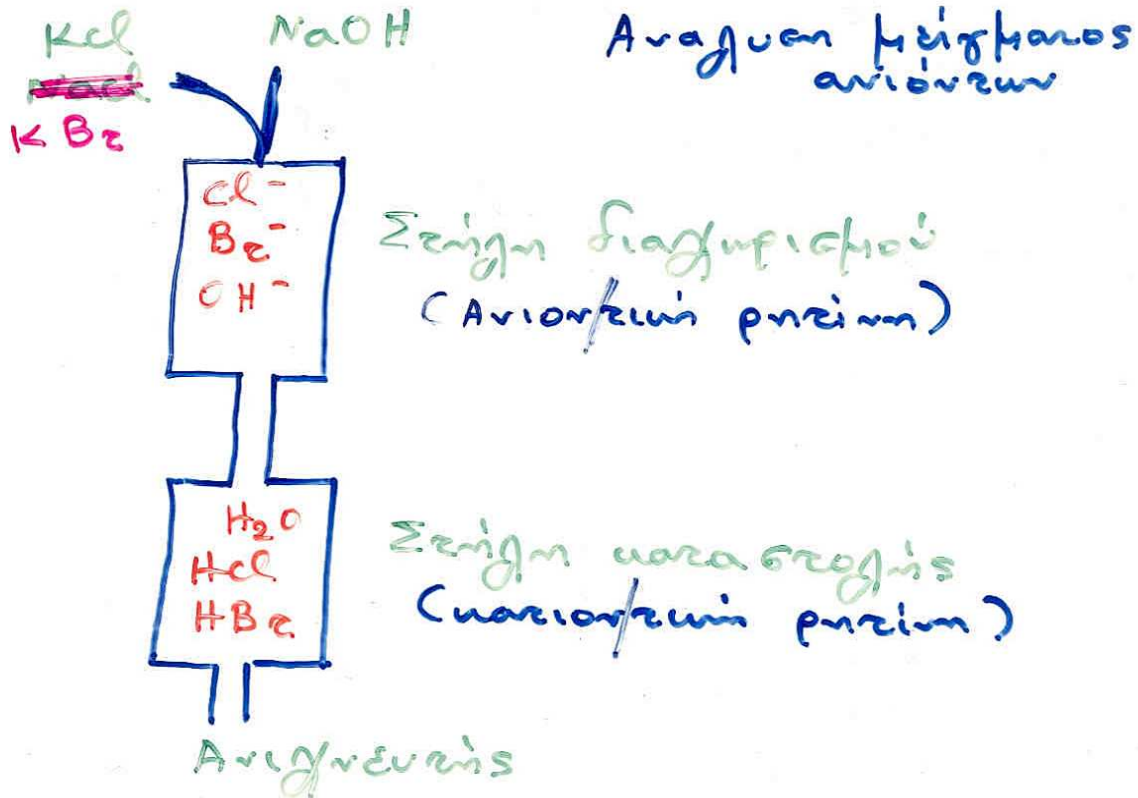 KCl
NaOH
Αναλυση μείγματος
ανιόντων
NaCl
KBr
Cl⁻
Br⁻
OH⁻
Στήλη διαχωρισμού
(Ανιοντική ρητίνη)
H₂O
HCl
HBr
Στήλη καταστολής
(κατιοντική ρητίνη)
Ανιχνευτής